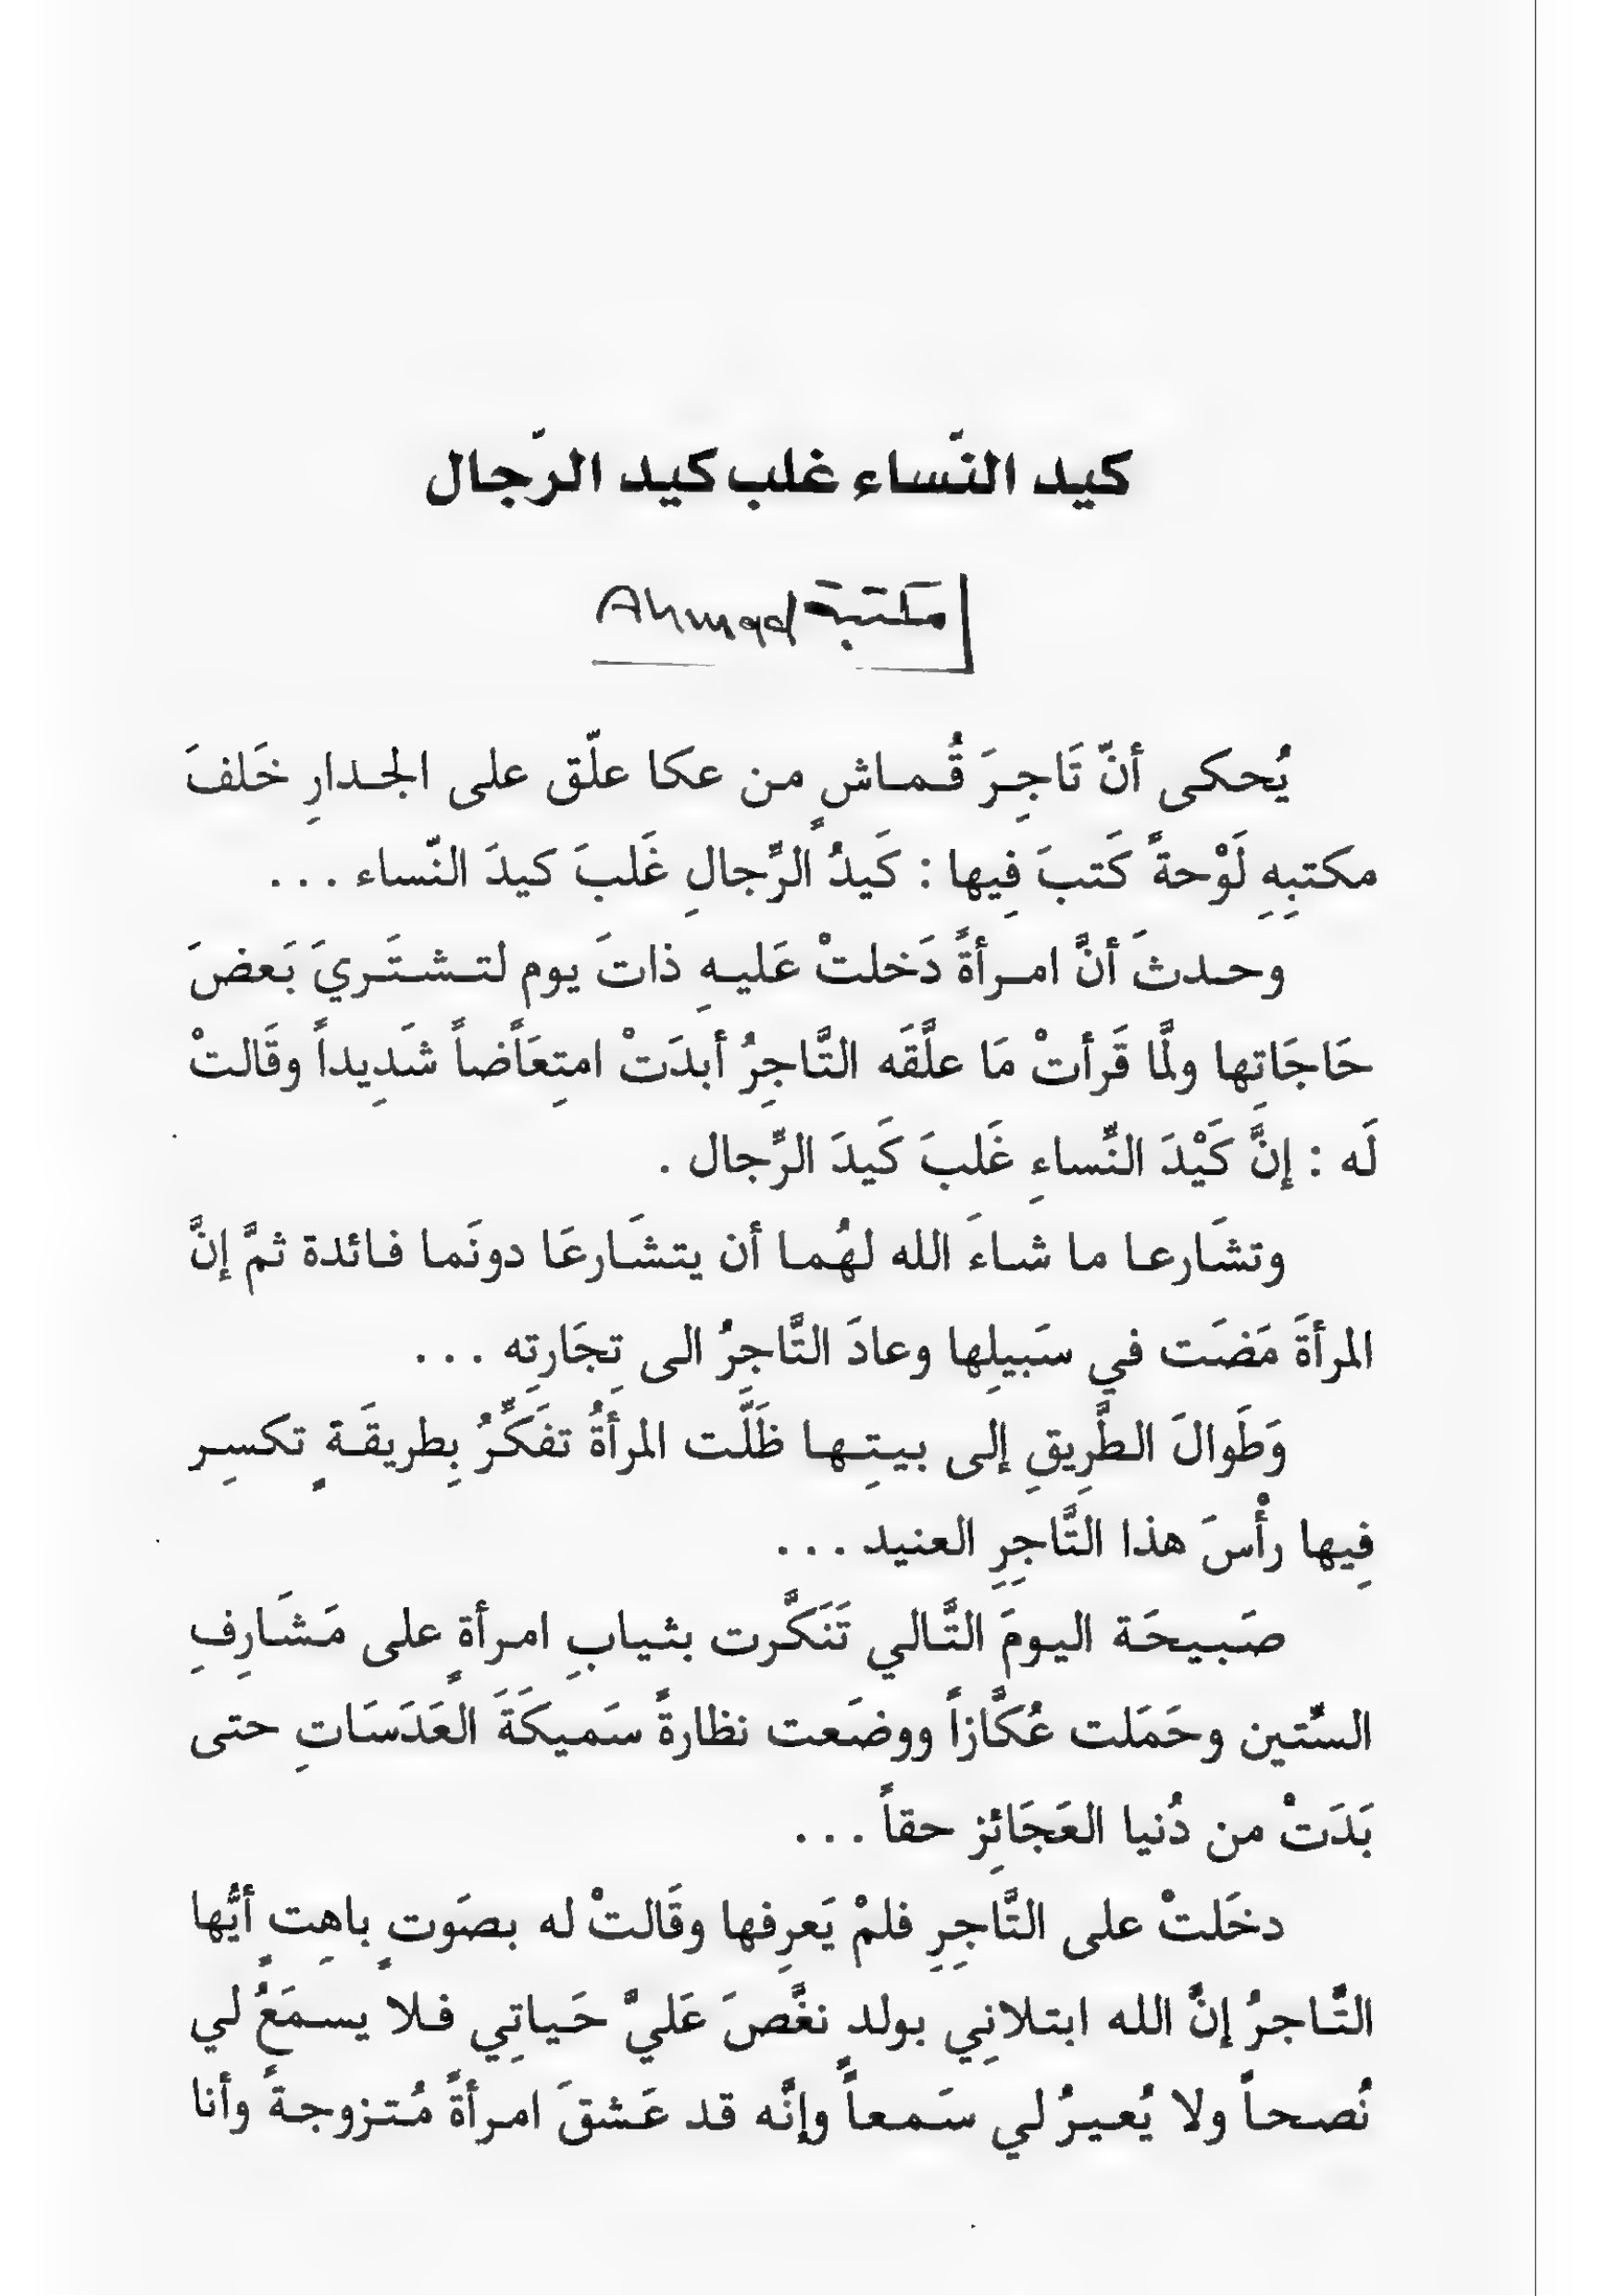 كيد النّساء غلب كيد الرّجال
مكتبة Ahmad
يُحكى أنّ تَاجِرَ قُماشٍ من عكا علّق على الجدارِ خَلفَ
مكتبِهِ لَوْحةً كَتبَ فِيها : كَيدُ الرِّجالِ غَلبَ كيدَ النّساء ...
وحدثَ أنَّ امرأةً دَخلتْ عَليهِ ذاتَ يوم لتشتَريَ بَعضَ
حَاجَاتِها ولمَّا قَرأتْ مَا علَّقَه التَّاجِرُ أبدَتْ امتِعَاضاً شَدِيداً وقَالتْ
لَه : إنَّ كَيْدَ النِّساءِ غَلبَ كَيدَ الرِّجال .
وتشَارعا ما شاءَ الله لهُما أن يتشَارعَا دونَما فائدة ثمَّ إنَّ
المرأةَ مَضَت في سَبيلِها وعادَ التَّاجرُ الى تِجَارتِه ...
وَطَوالَ الطَّرِيقِ إلى بيتِها ظَلَّت المرأَةُ تفَكِّرُ بِطريقَةٍ تكسِر
فِيها رأْسَ هذا التَّاجِرِ العنيد ...
صَبيحَة اليومَ التَّالي تَنَكَّرت بثيابِ امرأةٍ على مَشَارِفِ
السِّتين وحَمَلت عُكَّازاً ووضَعت نظارةً سَميكَةَ العَدَسَاتِ حتى
بَدَتْ من دُنيا العَجَائِز حقاً ...
دخَلتْ على التَّاجِرِ فلمْ يَعرِفها وقَالتْ له بصَوتٍ باهِتٍ أيُّها
التَّاجرُ إنَّ الله ابتلانِي بولدٍ نغَّصَ عَليَّ حَياتِي فلا يسمَعُ لي
نُصحاً ولا يُعيرُ لي سَمعاً وإنَّه قد عَشقَ امرأةً مُتزوجةً وأنا